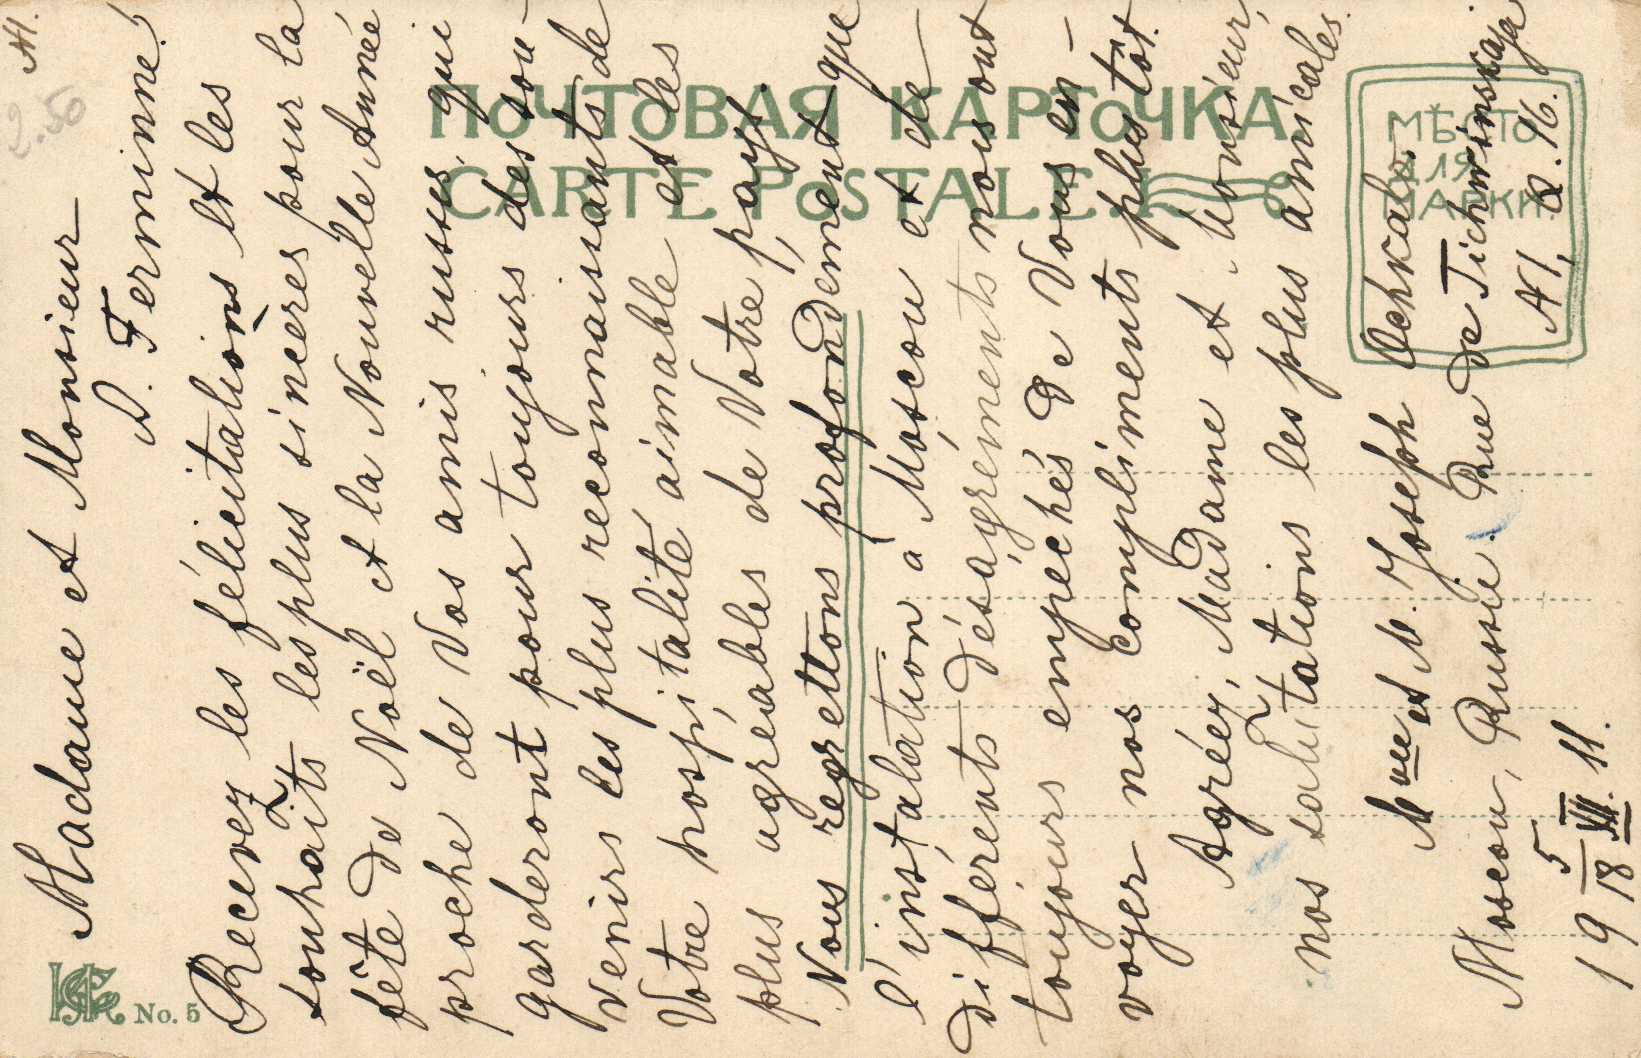 №1.
2.50
Madame et Monsieur
D. Fermine!
Recevez les félicitations et les
souhaits les plus sincères pour la
fête de Noël et la Nouvelle Année
proche de Vos amis russes, qui
garderont pour toujours des sou-
venirs les plus reconnaissants de
Votre hospitalité aimable et les
plus agréables de Votre pays.
Nous regrettons profondément que
l'instalation à Moscou et de
différents désagréments nous ont
toujours empechés de Vous en-
voyer nos compliments plus tôt.
Agréez, Madame et Monsieur,
nos salutations les plus amicales.
Mme et M. Joseph
Moscou, Russie. Rue de Tichwinskaja
5/18 XII. 1911.
ПОЧТОВАЯ КАРТОЧКА.
CARTE POSTALE.
МѢСТО
ДЛЯ
МАРКИ
No. 5